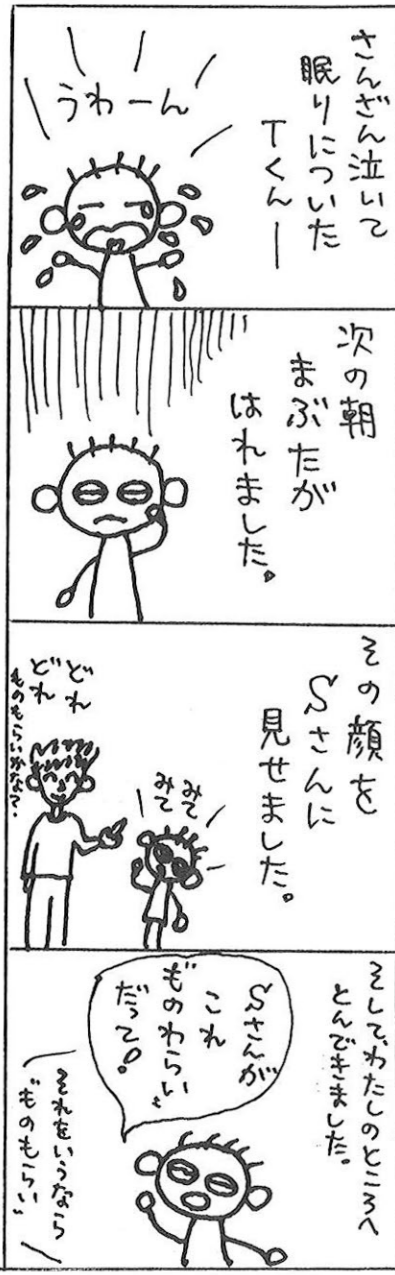 さんざん泣いて
眠りについた
Tくん―
うわーん
次の朝
まぶたが
はれました。
その顔を
Sさんに
見せました。
みて
みて
どれ
どれ
ものもらいかな?
そしてわたしのところへ
とんできました。
Sさんが
これ
"ものわらい"
だって!
それをいうなら
"ものもらい"